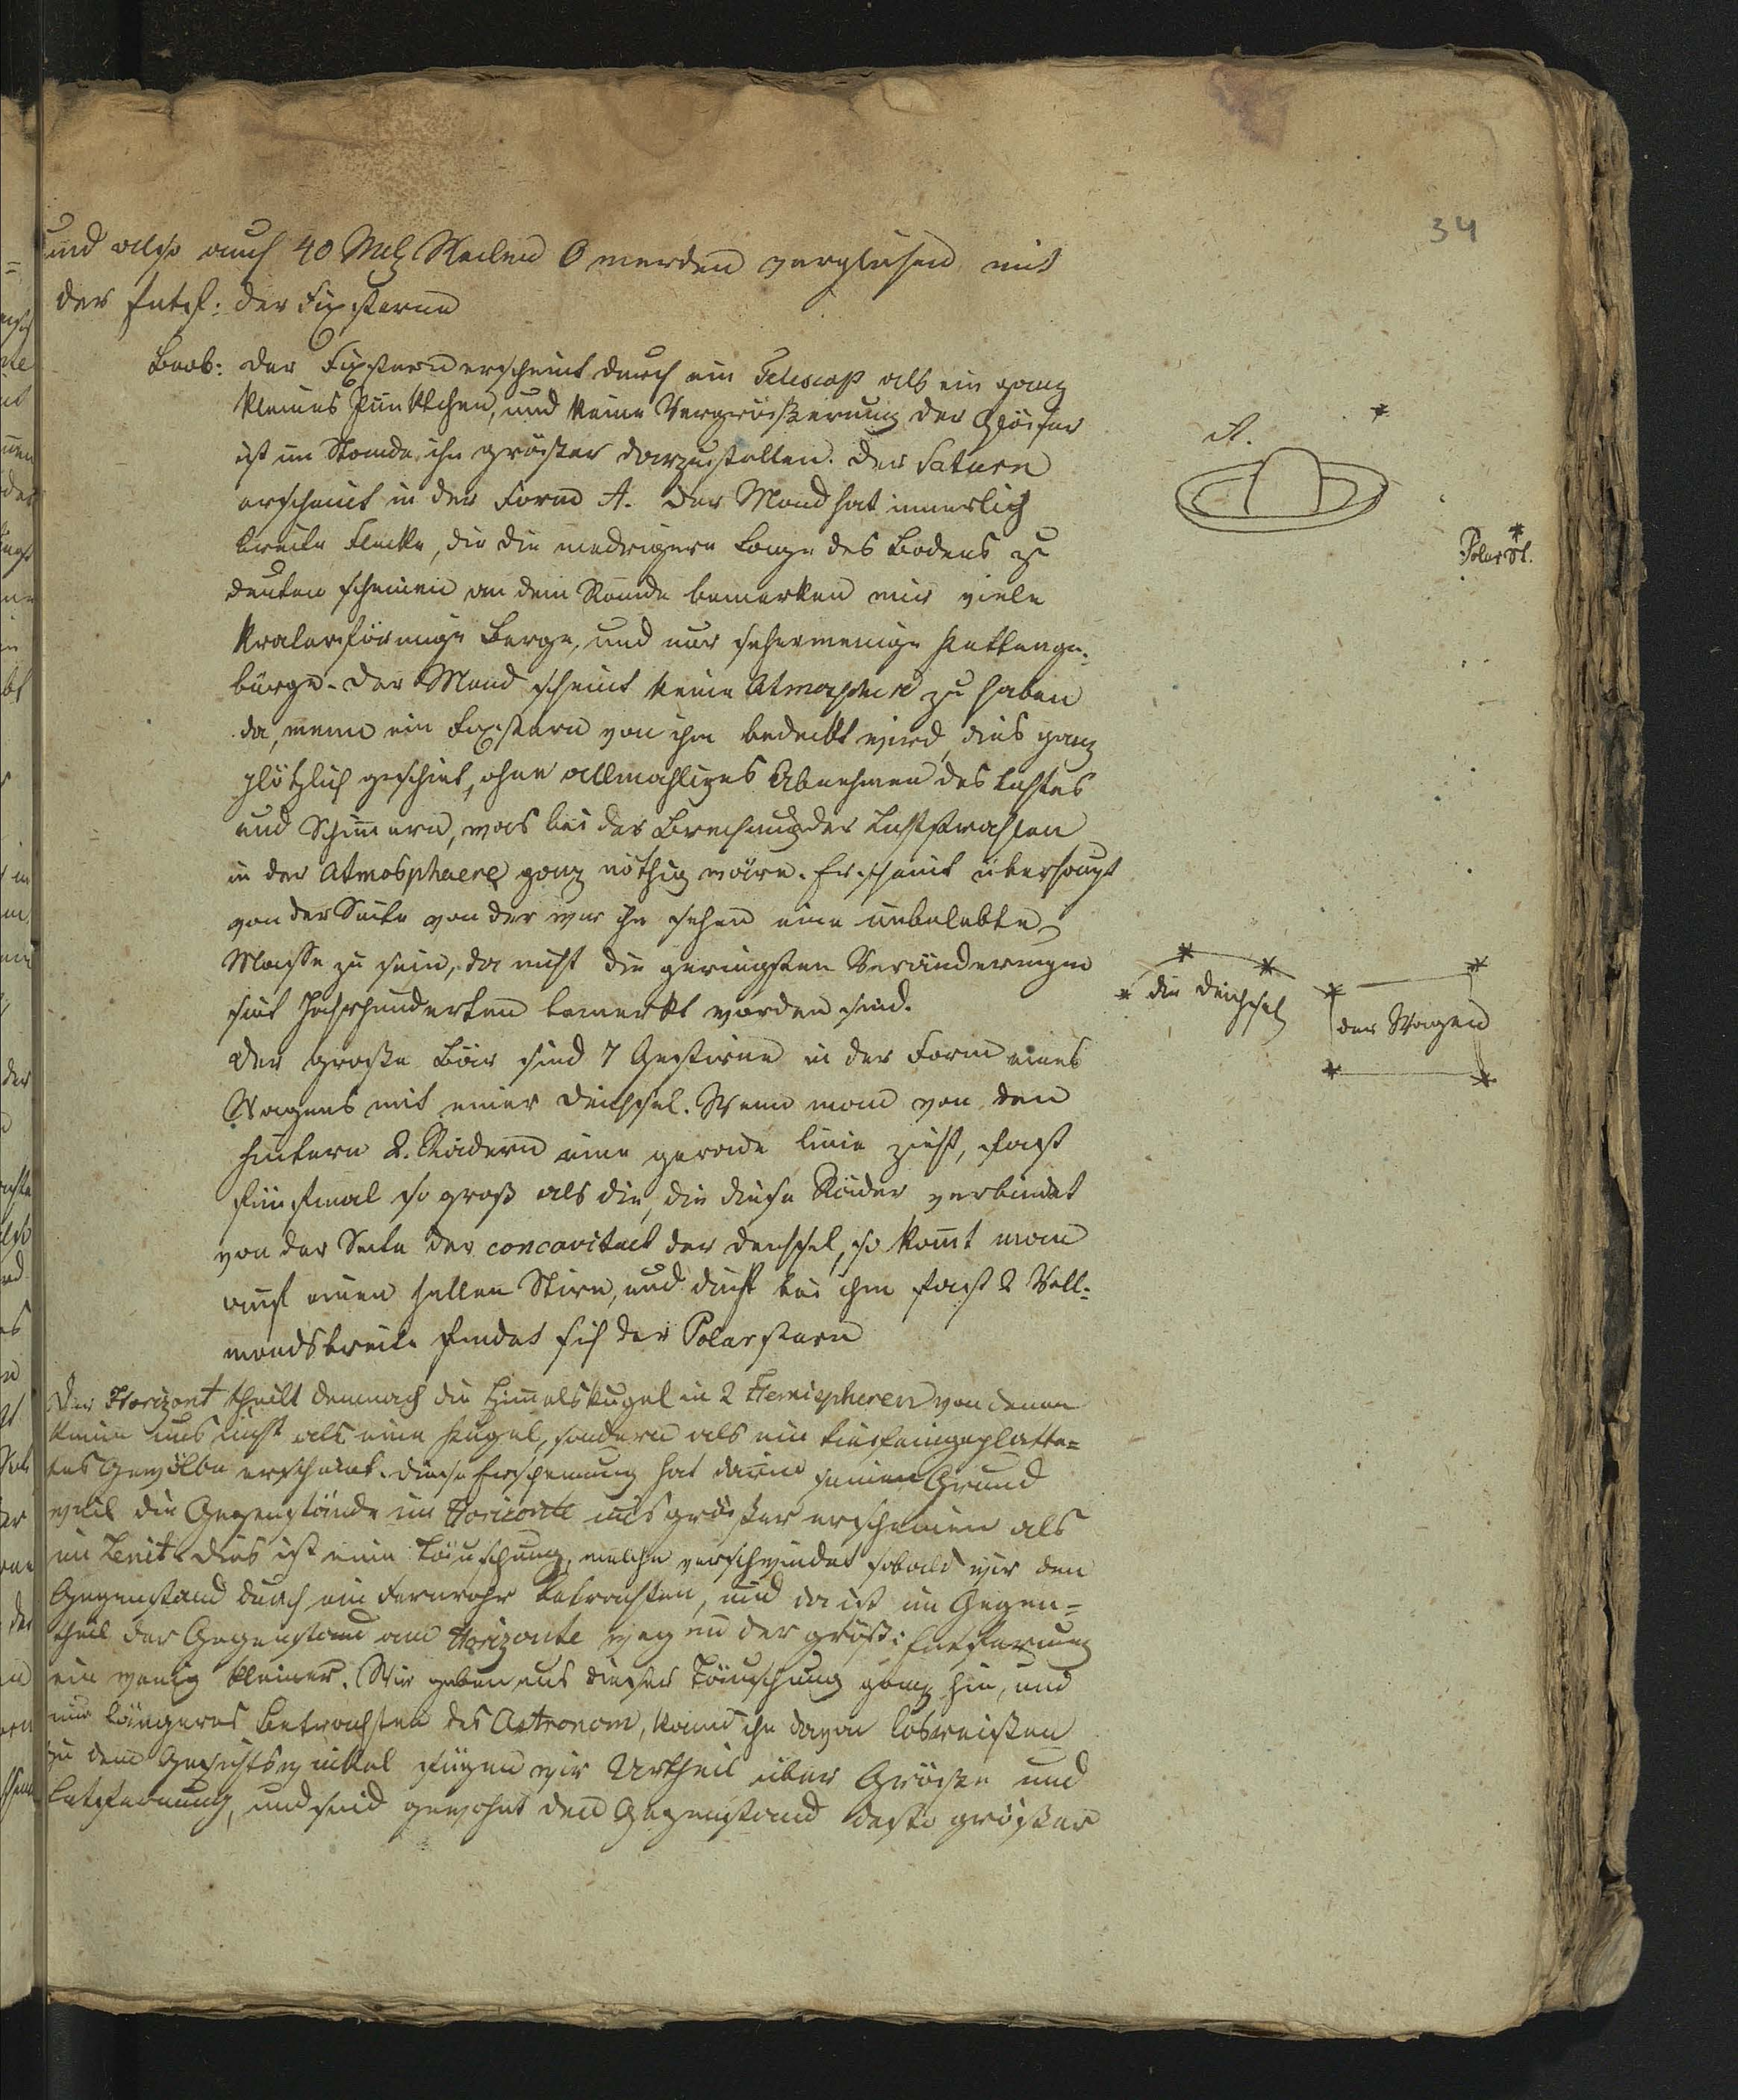 34
und also auch 40 Mll Meilen 0 werden verglichen mit
der Entf: der Fixsterne
Beob: der Fixstern erscheint durch ein Telescop als ein ganz
kleines Pünktchen, und keine Vergrößerung der Gläser
ist im Stande ihn größer darzustellen. Der Saturn
erscheint in der Form A. Der Mond hat innerlich
breite Flecke, die die niedrigere Lage des Bodens zu
deuten scheinen an dem Rande bemerken wir viele
kraterförmige Berge, und nur sehr wenige Kettenge-
bürge. Der Mond scheint keine Atmosphere zu haben
da, wenn ein Fixstern von ihm bedeckt wird, dies ganz
plötzlich geschiet, ohne allmahliges Abnehmen des Lichtes
und Schimern, was bei der Brechung der Lichtstrahlen
in der Atmosphaere ganz nöthig wäre. Er scheint überhaupt
von der Seite von der wir ihn sehen eine unbelebte
Masse zu sein, da nicht die geringsten Veränderungen
seit Jahrhunderten bemerkt worden sind.
Der große Bär sind 7 Gestirne in der Form eines
Wagens mit einer Deichsel. Wenn man von den
hintern 2. Rädern eine gerade Linie zieht, fast
fünfmal so groß als die, die diese Räder verbindet
von der Seite der concavitaet der Deichsel, so komt man
auf einen hellen Stern, und dicht bei ihm fast 2 Voll-
mondsbreite findet sich der Polarstern
Der Horizont theilt demnach die Himelskugel in 2 Hemispheren von denen
keine uns nicht als eine Kugel, sondern als ein eingeplatte-
tes Gewölbe erscheint. Diese Erscheinung hat darin seinen Grund
weil die Gegenstände im Horizonte uns größer erscheinen als
im Zenit. Dies ist eine Täuschung, welche verschwindet sobald wir den
Gegenstand durch ein Fernrohr betrachten, und da ist im Gegen-
theil der Gegenstand am Horizonte wegen der größ: Entfernung
ein wenig kleiner. Wir geben uns dieser Täuschung ganz hin, und
nur längeres Betrachten des Astronom, kann ihn davon losreißen
Zu dem Gesichtswinkel fügen wir Urtheil über Größe und
Entfernung, und sind gewohnt den Gegenstand desto größer
A.
Polarst.
die Deichsel
der Wagen